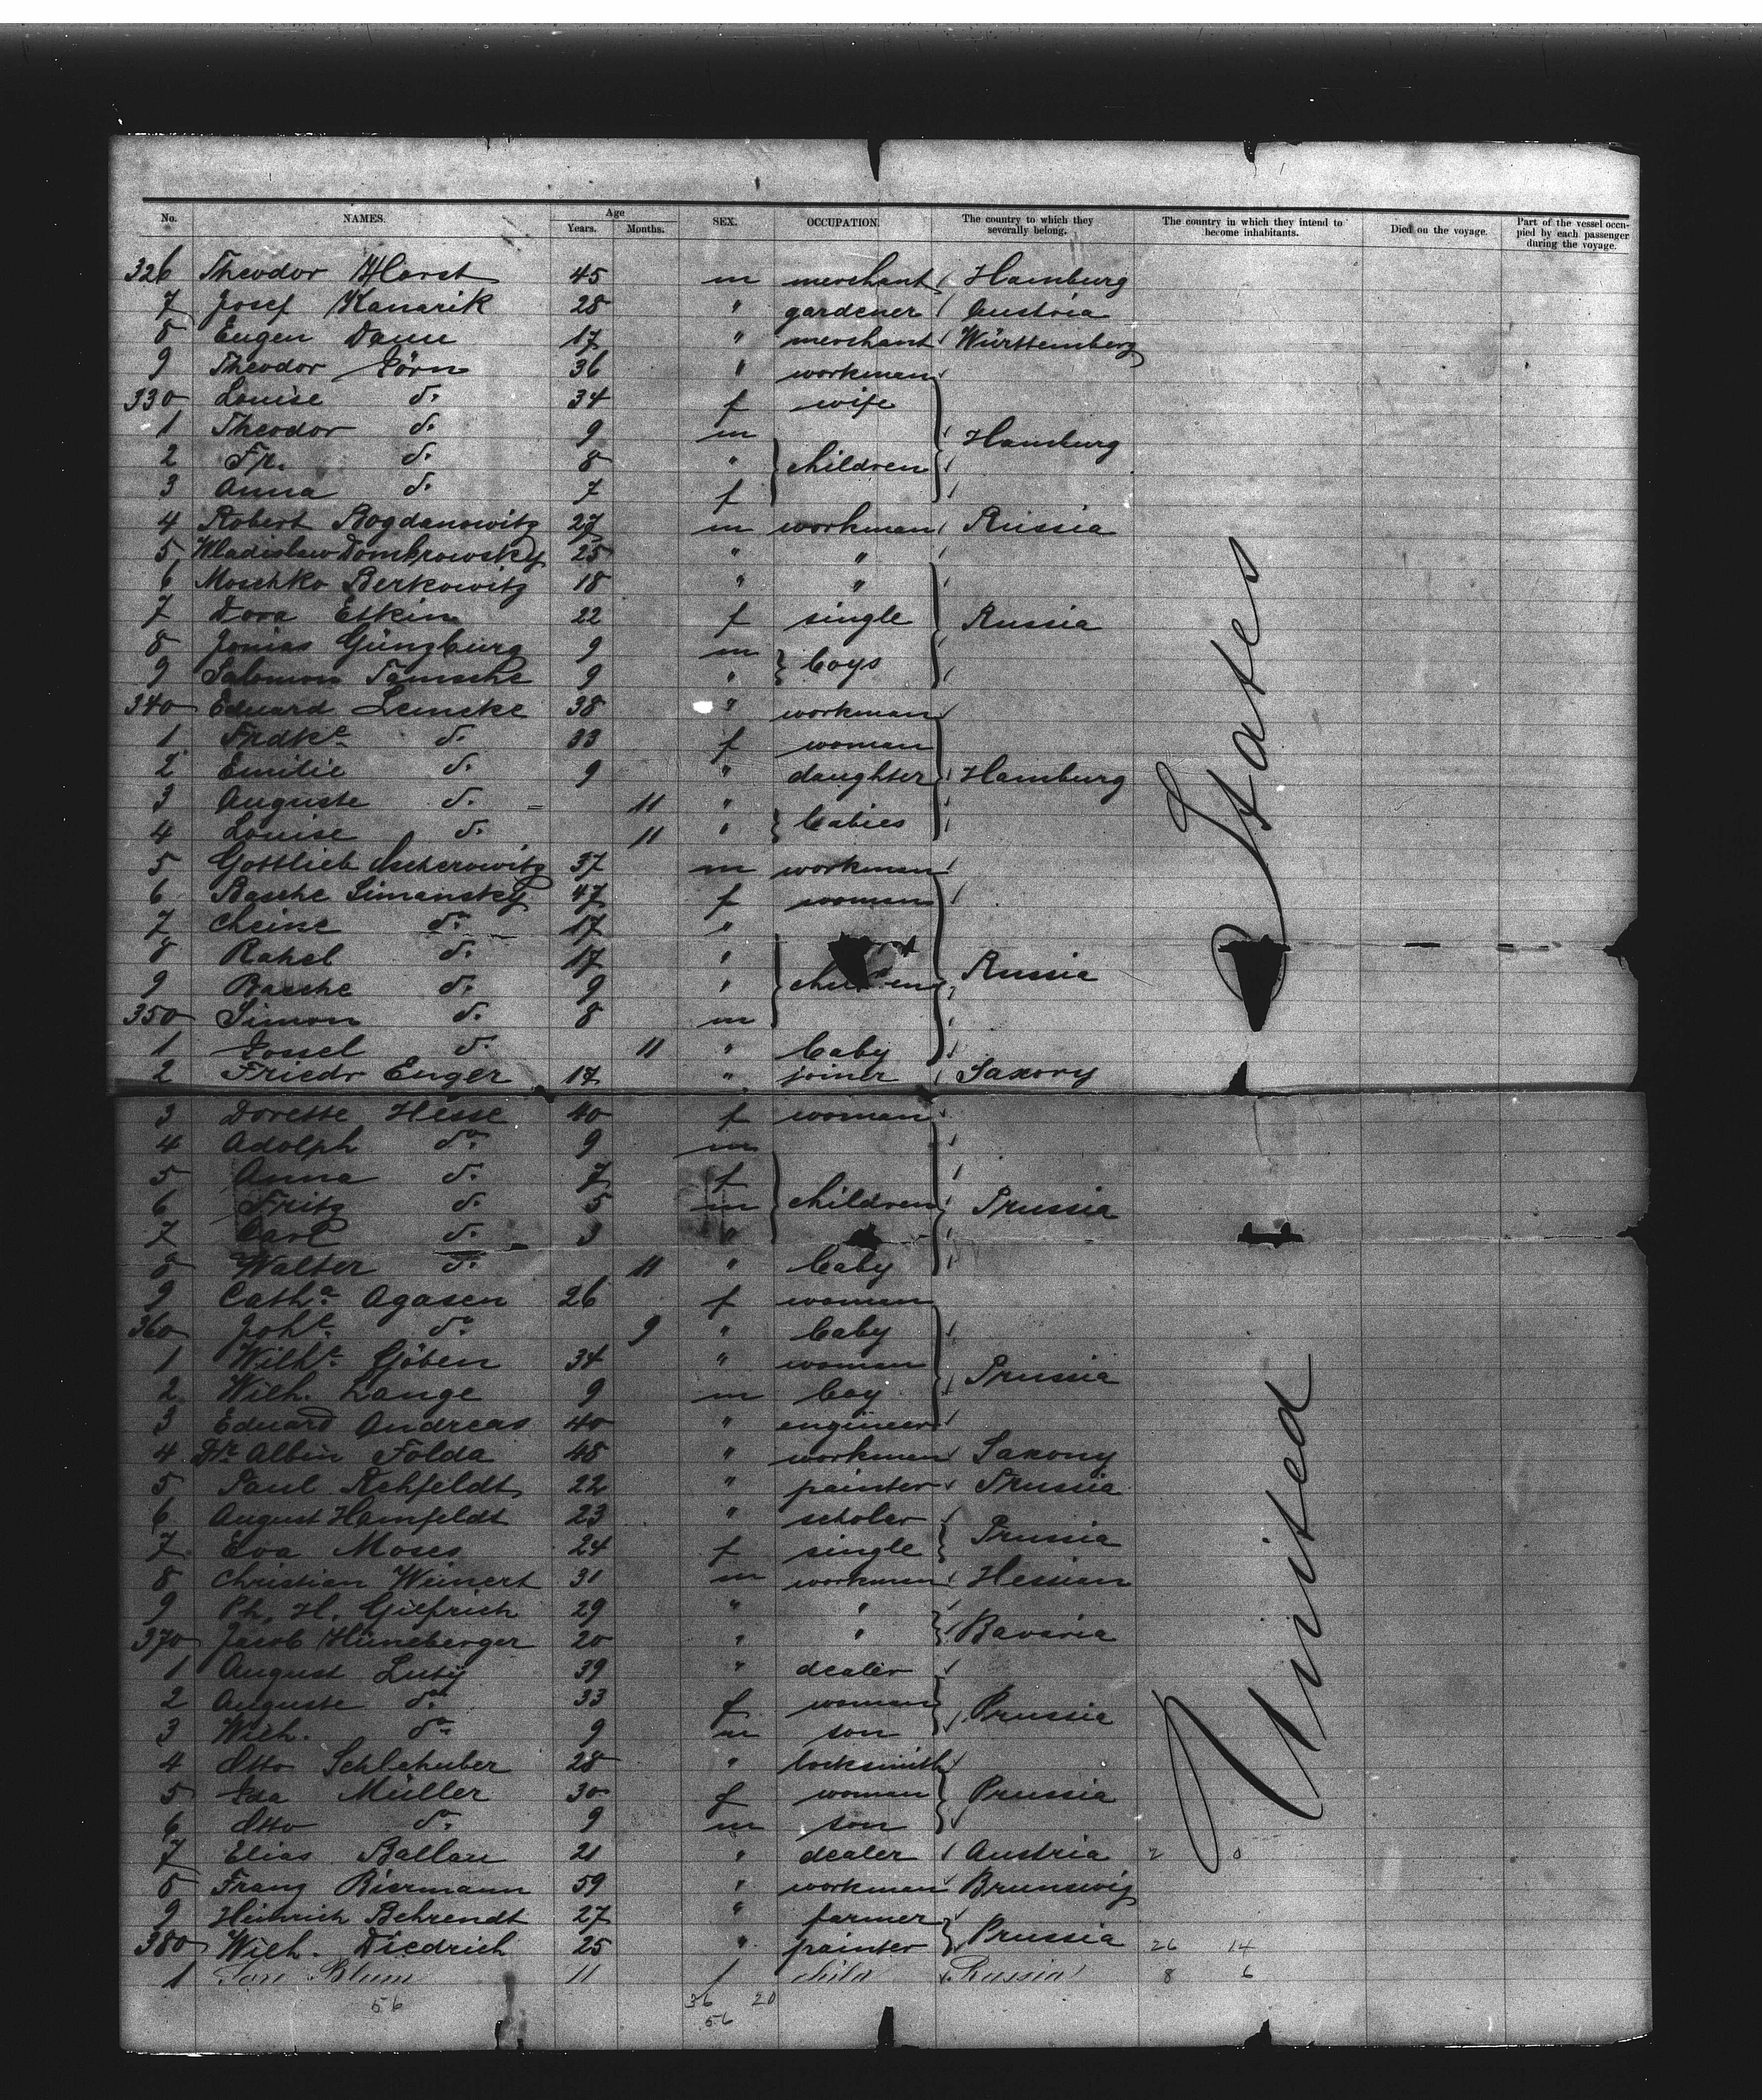 No. NAMES. Age Years. Months. SEX. OCCUPATION. The country to which they severally belong. The country in which they intend to become inhabitants. Died on the voyage. Part of the vessel occupied by each passenger during the voyage.
326 Theodor Horst 45 m merchant Hamburg
7 Josef Kanarik 28 " gardener Austria
8 Eugen Daun 17 " merchant Württemberg
9 Theodor Förn 36 " workman
330 Louise d. 34 f wife
1 Theodor d. 9 m
Hamburg
2 Fr. d. 8 " children
3 Anna d. 7 f
4 Robert Bogdanowitz 27 m workman Russia
5 Wladislaw Dombrowsky 25 " "
6 Moschko Berkowitz 18 " "
7 Dora Etkin 22 f single Russia
8 Jonias Günzburg 9 m boys
9 Salomon 9 "
340 Eduard Lemcke 38 " workman
1 Frdke d. 33 f woman
2 Emilie d. 9 " daughter Hamburg
3 Auguste d. 11 " babies
4 Louise d. 11 "
5 Gottlieb 37 m workman
6 Basche Simansky 47 f woman
7 Cheine do 17 "
8 Rahel d. 17 "
9 Basche d. 9 " children Russia
350 Simon d. 8 m
1 Jossel d. 11 " baby
2 Friedr Enger 17 " joiner Saxony
3 Dorette Hesse 40 f woman
4 Adolph do 9 m
5 Anna d. 7 f
6 Fritz d. 5 m children Prussia
7 Carl d. 3 "
8 Walter d. 11 " baby
9 Catha Agasen 26 f woman
360 Johe do 9 " baby
1 Wilhe Göben 34 " woman
Prussia
2 Wilh. Lange 9 m boy
3 Eduard Andreas 40 " engineer
4 Dr. Albin Folda 48 " workman Saxony
5 Paul Rehfeldt 22 " painter Prussia
6 August Hamfeldt 23 " scholar
Prussia
7 Eva Moses 24 f single
8 Christian Weinert 31 m workman Hessian
9 Ph. H. Gilfrich 29 " "
370 Jacob Hüneberger 20 " " Bavaria
1 August Luty 39 " dealer
2 Auguste do 33 f woman Prussia
3 Wilh. do 9 m son
4 Otto Schlehuber 28 " locksmith
5 Ida Müller 30 f woman Prussia
6 Otto d. 9 m son
7 Elias Ballau 21 " dealer Austria
8 Franz Biermann 59 " workman Brunswig
9 Heinrich Behrendt 27 " farmer
380 Wilh. Diedrich 25 " painter Prussia 26 14
1 Blum 11 f child Russia 8 6
56 36 20
56
United States